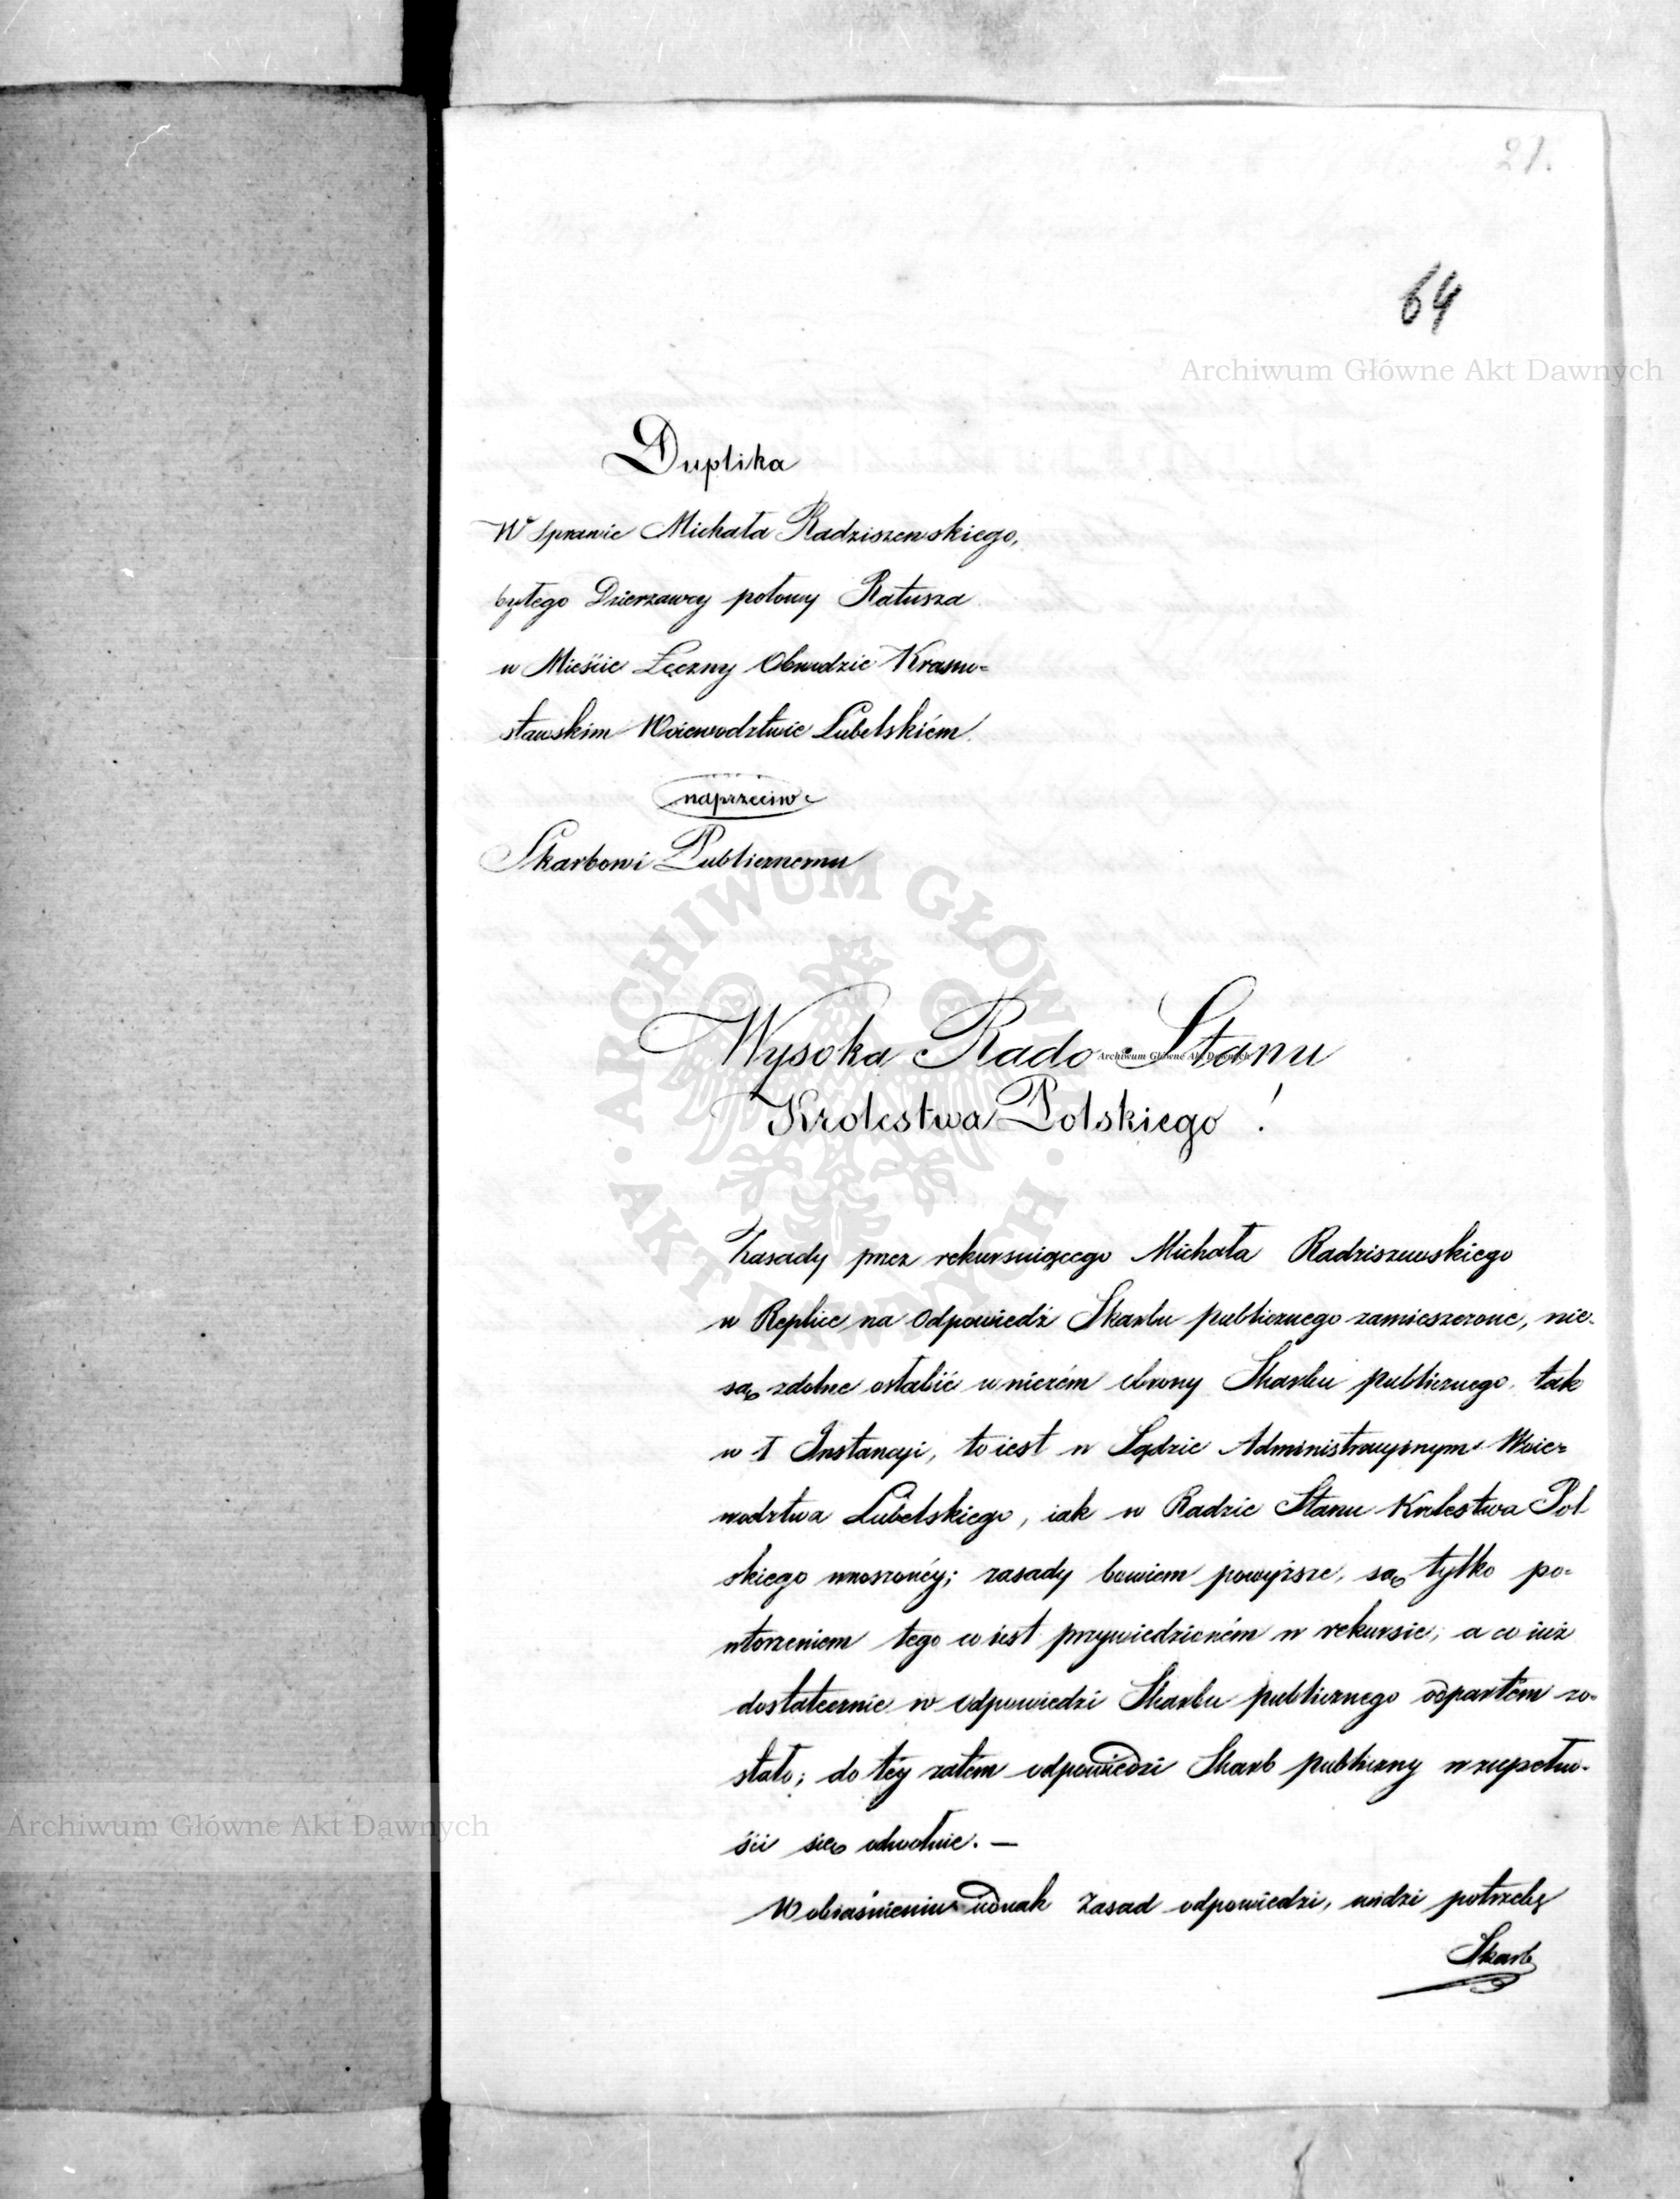 21.
64
Archiwum Główne Akt Dawnych
Duplika
W Sprawie Michała Radziszewskiego,
byłego Dzierzawcy połowy Ratusza
w Mieście Łęczny Obwodzie Krasno=
stawskim Woiewodztwie Lubelskiém
naprzeciw
Skarbowi Publicznemu
ARCHIWUM GŁÓWNE AKT DAWNYCH
Wysoka Rado Stanu
Archiwum Główne Akt Dawnych
Krolestwa Polskiego !
Zasady przez rekursuiącego Michała Radziszewskiego
w Replice na Odpowiedź Skarbu publicznego zamieszczone, nie-
są zdolne osłabić w niczém obrony Skarbu publicznego, tak
w I Instancyi, to iest w Sądzie Administracyinym Woie=
wodztwa Lubelskiego, iak w Radzie Stanu Krolestwa Pol
skiego wnoszonéy; zasady bowiem powyższe, są tylko po=
wtorzeniem tego co iest przywiedzioném w rekursie, a co iuż
dostatecznie w odpowiedzi Skarbu publicznego odpartém zo-
stało; do téy zatém odpowiedzi Skarb publiczny w zupełno-
ści się odwołuie. —
W obiaśnieniu iednak Zasad odpowiedzi, widzi potrzebę
Skarb
Archiwum Główne Akt Dawnych